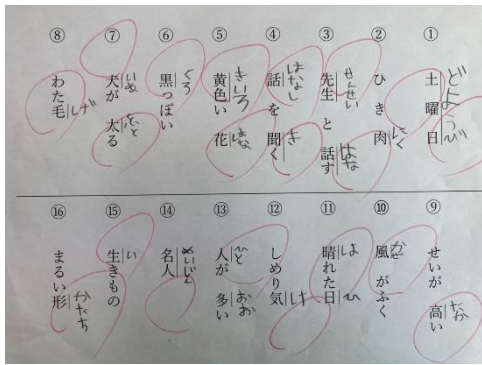 ① 土曜日 どようび
② ひき肉 にく
③ 先生と話す せんせい はな
④ 話を聞く はなし き
⑤ 黄色い花 きいろ はな
⑥ 黒っぽい くろ
⑦ 犬が太る いぬ ふと
⑧ わた毛 げ
⑨ せいが高い たか
⑩ 風がふく かぜ
⑪ 晴れた日 は ひ
⑫ しめり気 け
⑬ 人が多い ひと おお
⑭ 名人 めいじん
⑮ 生きもの い
⑯ まるい形 かたち